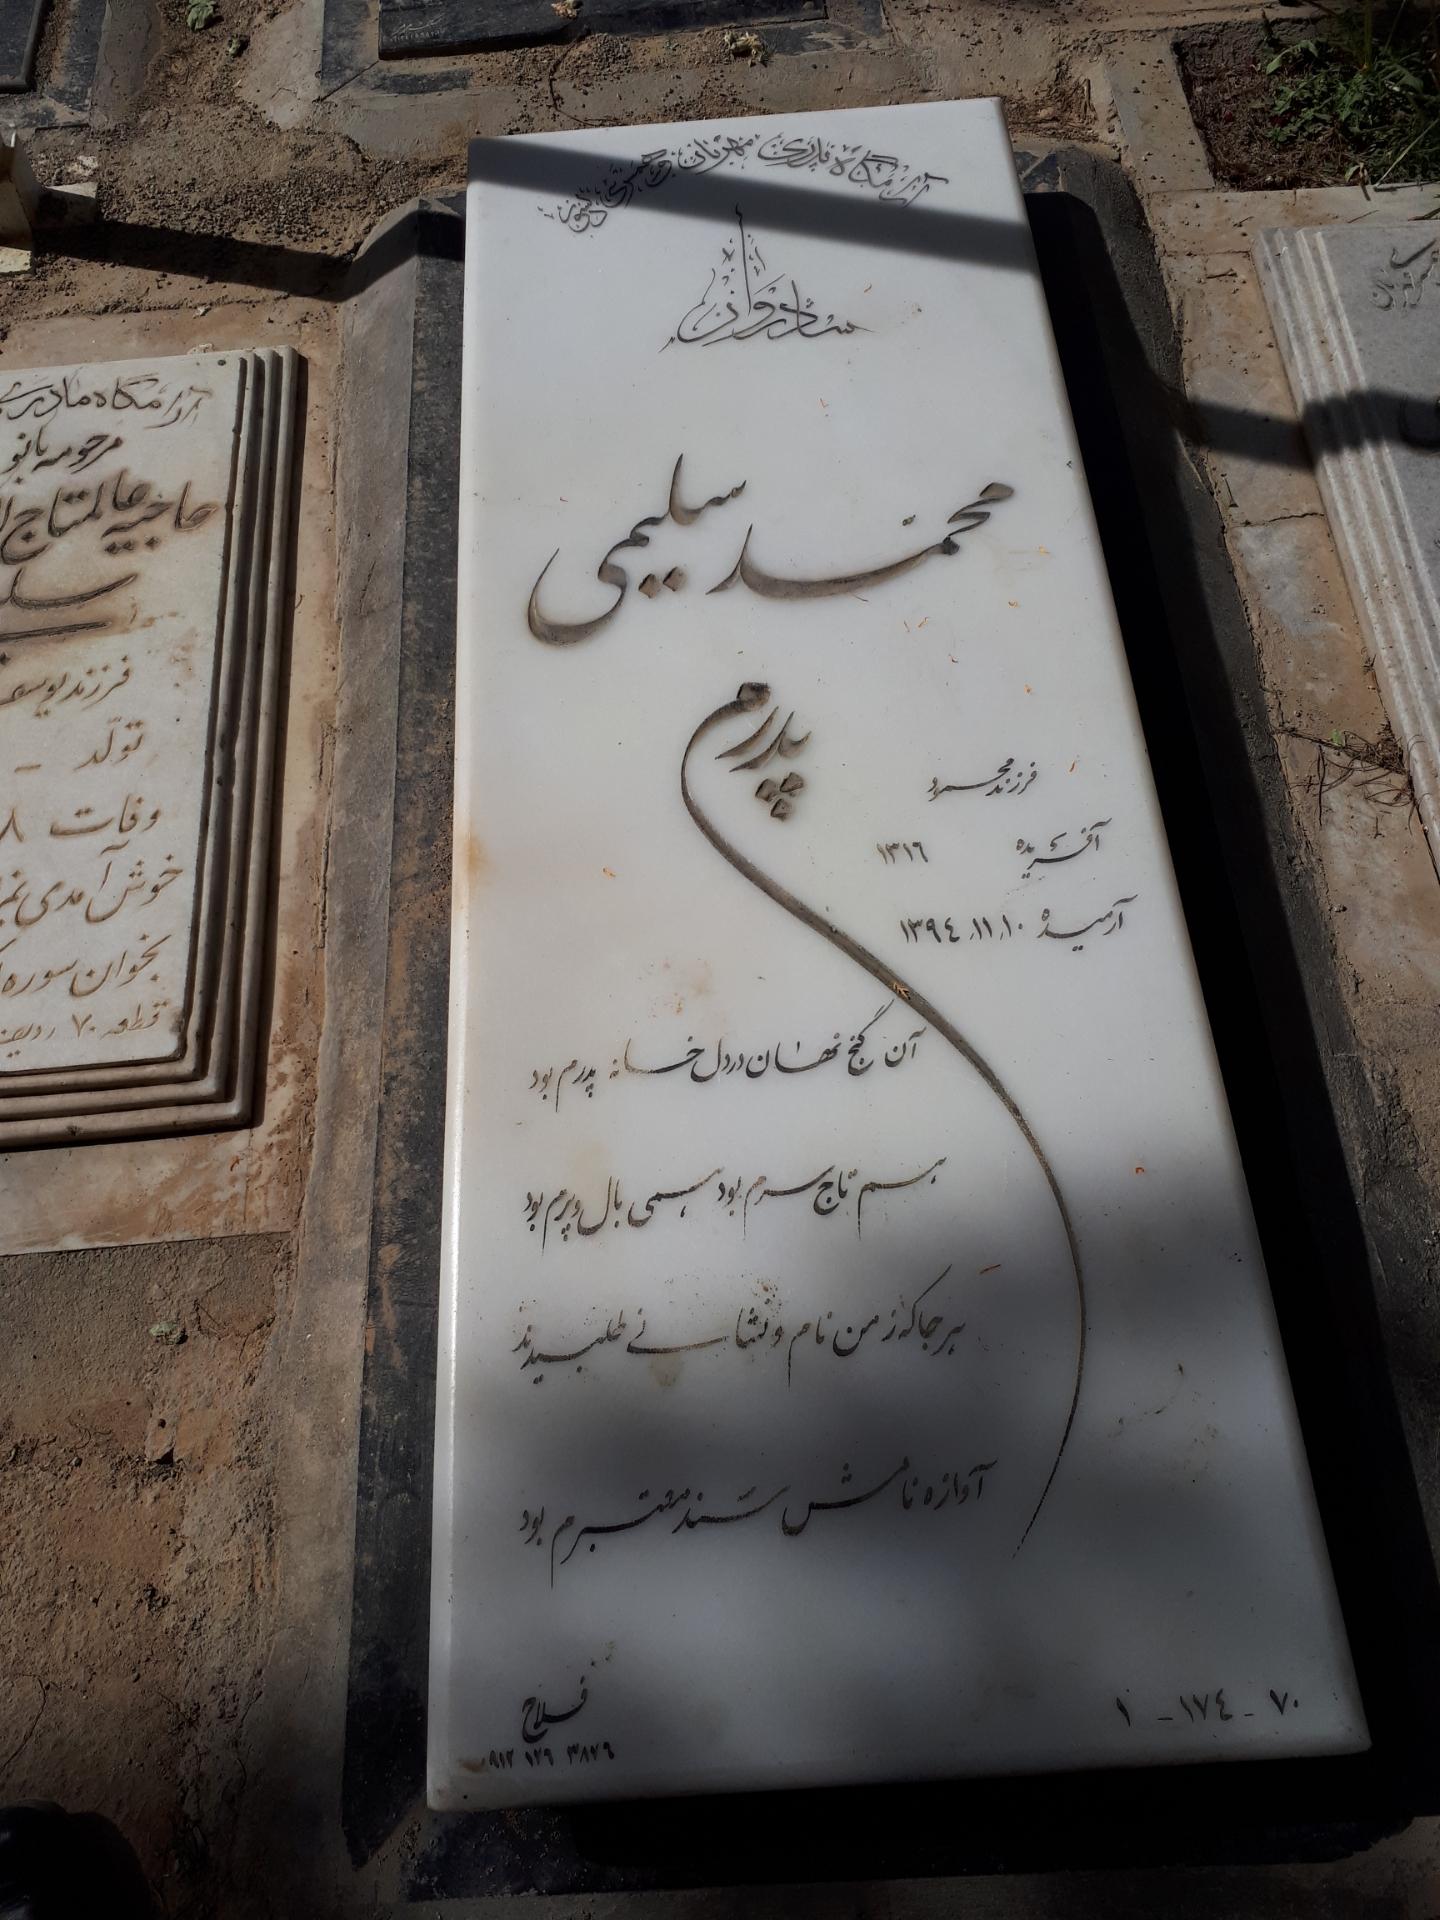 آرامگاه پدری مهربان و همسری دلسوز
شادروان
محمد سلیمی
پدرم
فرزند محمود
آفریده ۱۳۱۶
آرمیده ۱۳۹٤.۱۱.۱۰
آن گنج نهان در دل خانه پدرم بود
هم تاج سرم بود همی بال و پرم بود
هر جا که ز من نام و نشانی طلبیدند
آوازه نامش سند معتبرم بود
۷۰ - ۱۷٤ - ۱
فلاح
۰۹۱۲ ۱۲۶ ۳۸۷۶
آرامگاه مادری
مرحومه بانو
حاجیه عالمتاج
فرزند یوسف
تولد -
وفات ۸
خوش آمدی
بخوان سوره
قطعه ۷۰ ردیف